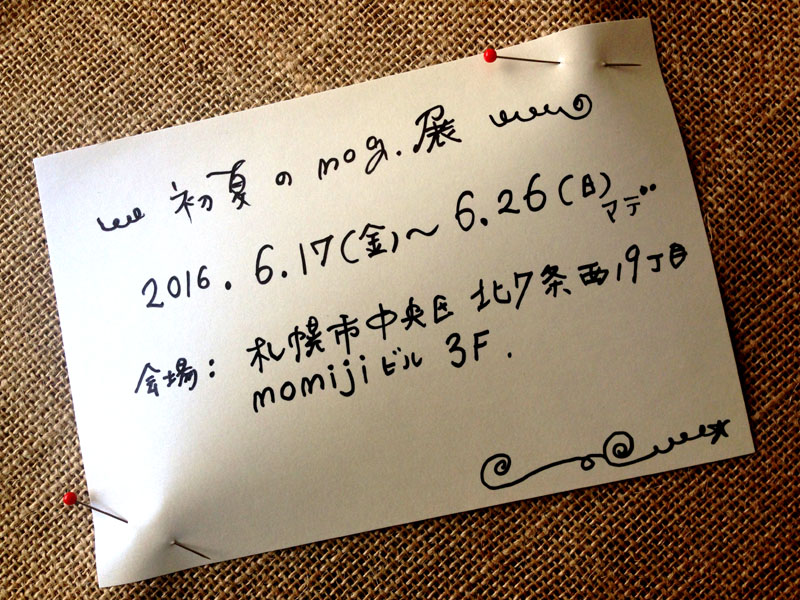 初夏の mog. 展
2016. 6.17(金)〜 6.26(日)マデ
会場: 札幌市中央区 北7条西19丁目
momijiビル 3F.